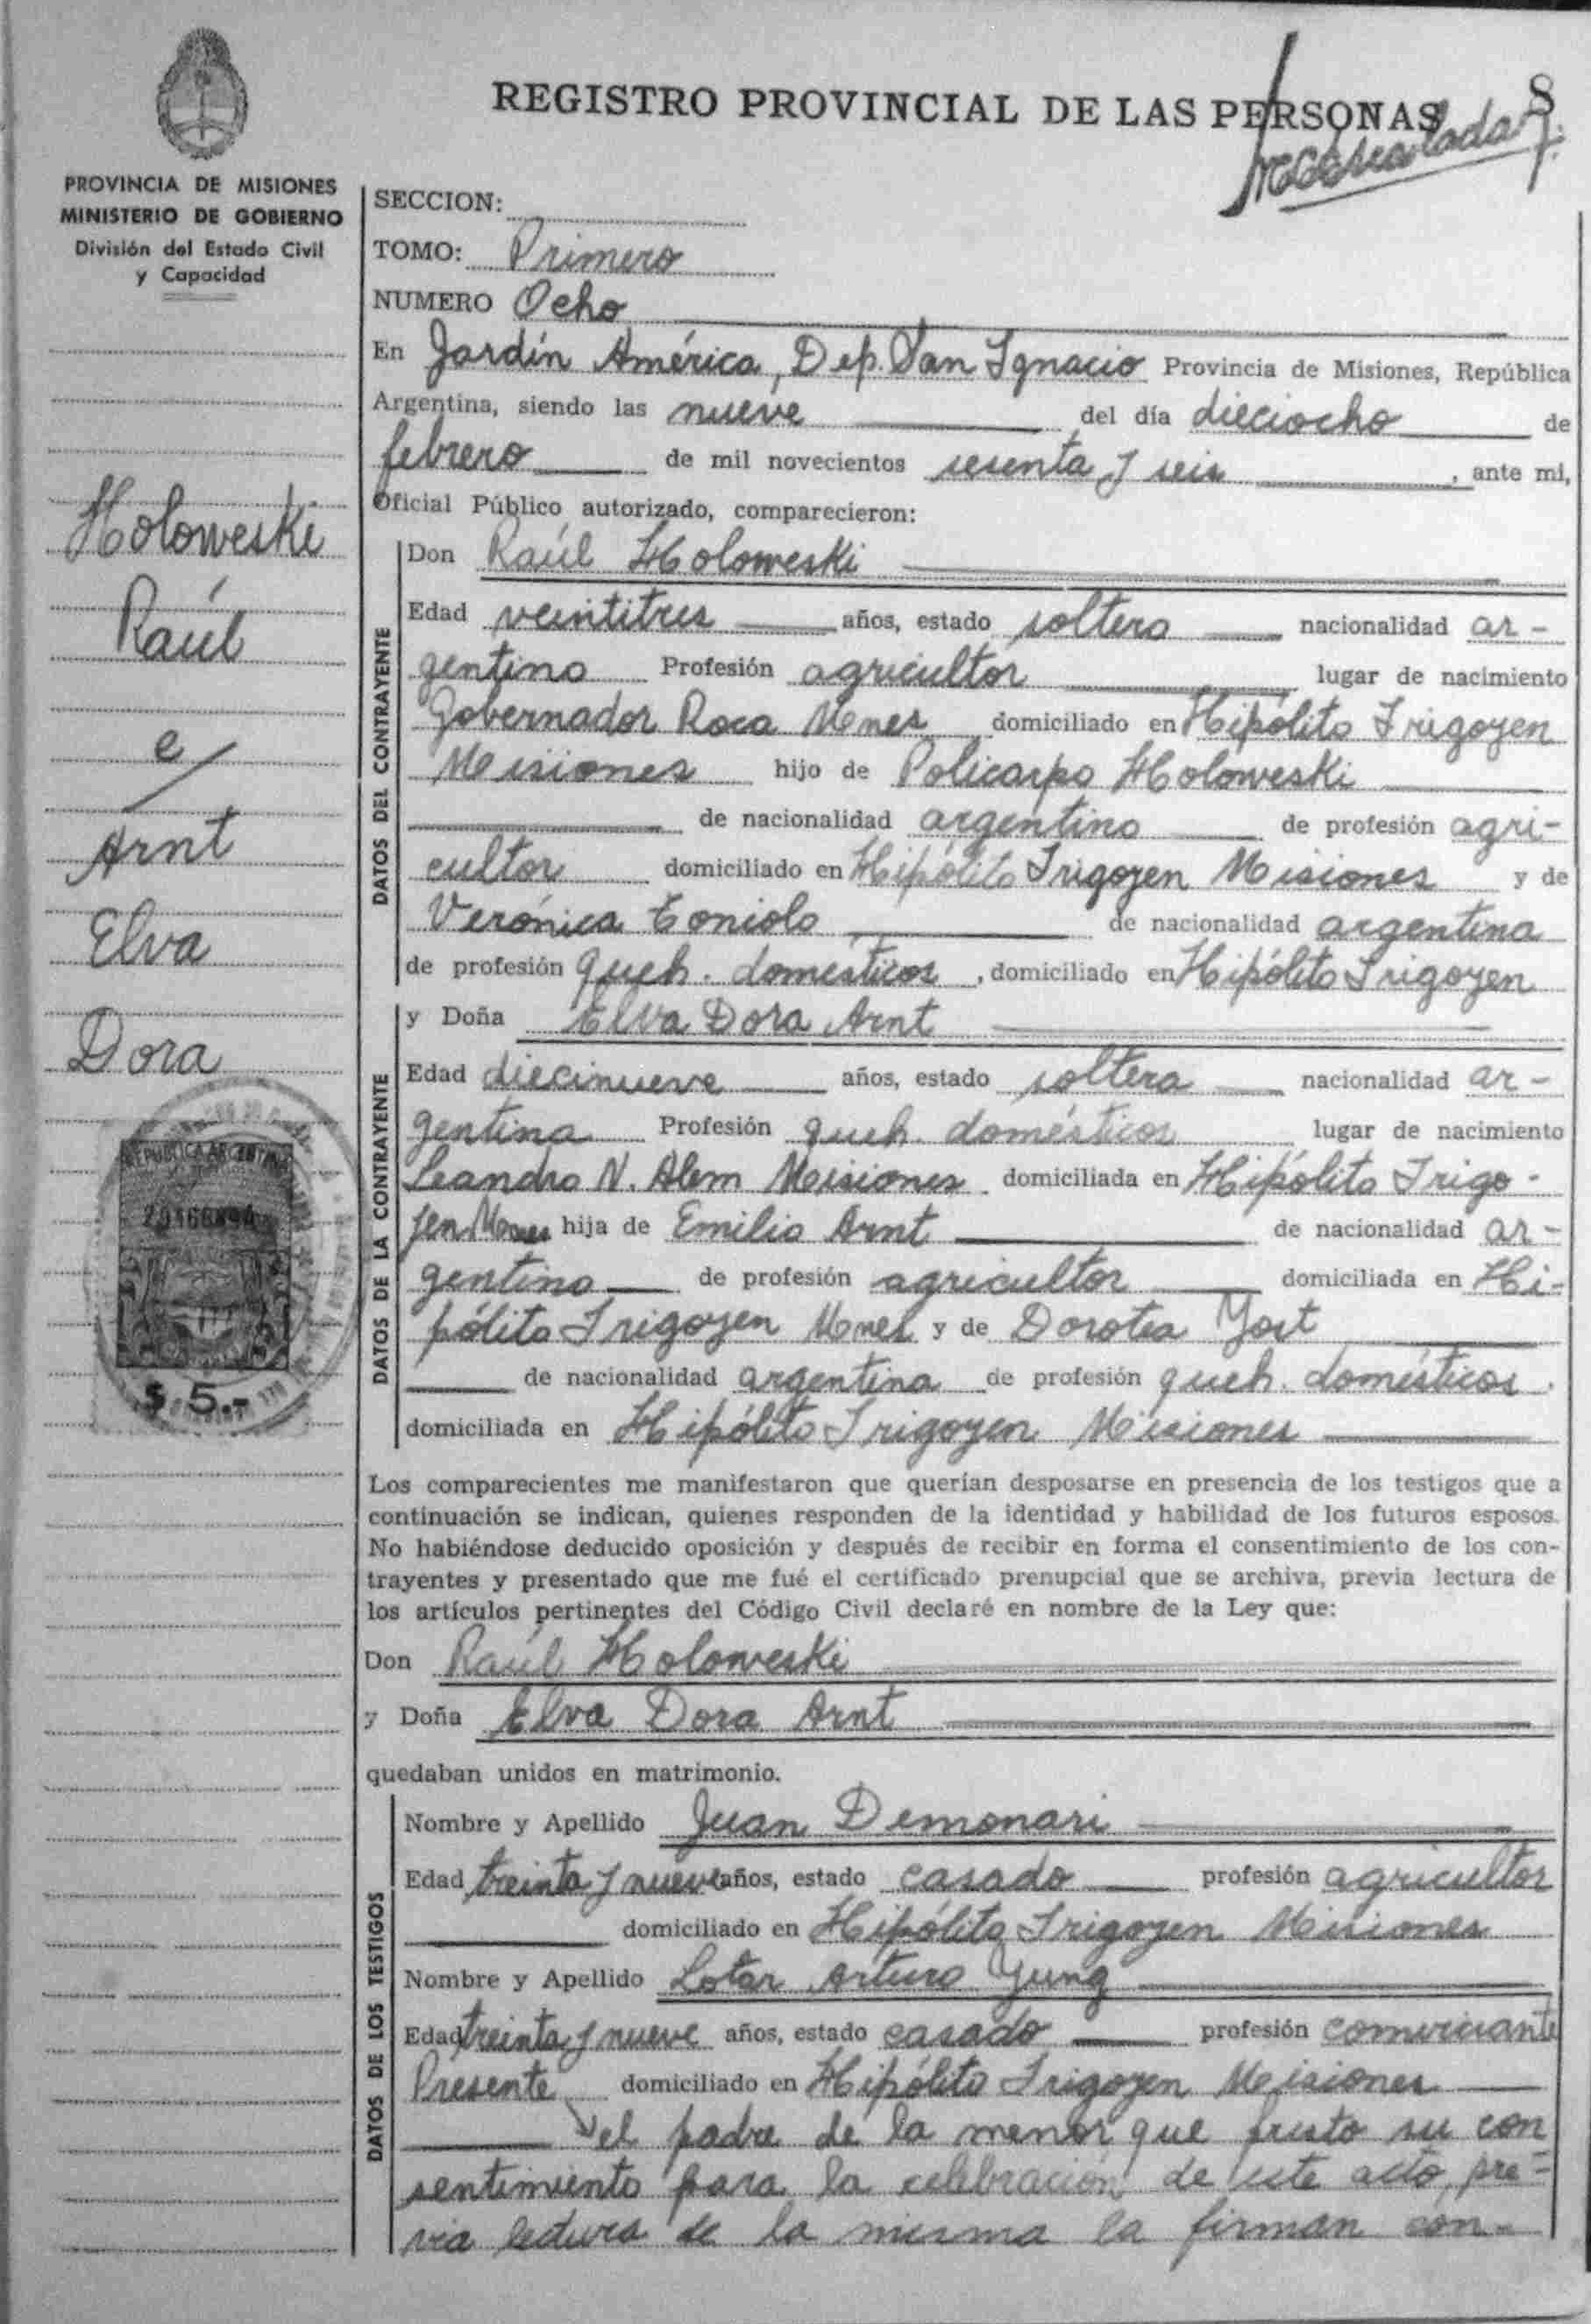 REGISTRO PROVINCIAL DE LAS PERSONAS
8
PROVINCIA DE MISIONES
MINISTERIO DE GOBIERNO
División del Estado Civil
y Capacidad
Holoweski
Raúl
e/
Arnt
Elva
Dora
REPUBLICA ARGENTINA
$ 5.-
SECCION:
TOMO: Primero
NUMERO Ocho
En Jardín América, Dep. San Ignacio Provincia de Misiones, República
Argentina, siendo las nueve del día dieciocho de
febrero de mil novecientos sesenta y seis, ante mi,
Oficial Público autorizado, comparecieron:
DATOS DEL CONTRAYENTE
Don Raúl Holoweski
Edad veintitres años, estado soltero nacionalidad ar-
gentino Profesión agricultor lugar de nacimiento
Gobernador Roca Mnes domiciliado en Hipólito Irigoyen
Misiones hijo de Policarpo Holoweski
de nacionalidad argentino de profesión agri-
cultor domiciliado en Hipólito Irigoyen Misiones y de
Verónica Toniolo de nacionalidad argentina
de profesión queh. domésticos, domiciliado en Hipólito Irigoyen
DATOS DE LA CONTRAYENTE
y Doña Elva Dora Arnt
Edad diecinueve años, estado soltera nacionalidad ar-
gentina Profesión queh. domésticos lugar de nacimiento
Leandro N. Alem Misiones domiciliada en Hipólito Irigo-
yen Mnes hija de Emilio Arnt de nacionalidad ar-
gentino de profesión agricultor domiciliada en Hi-
pólito Irigoyen Mnes y de Dorotea Yost
de nacionalidad argentina de profesión queh. domésticos.
domiciliada en Hipólito Irigoyen Misiones
Los comparecientes me manifestaron que querían desposarse en presencia de los testigos que a
continuación se indican, quienes responden de la identidad y habilidad de los futuros esposos.
No habiéndose deducido oposición y después de recibir en forma el consentimiento de los con-
trayentes y presentado que me fué el certificado prenupcial que se archiva, previa lectura de
los artículos pertinentes del Código Civil declaré en nombre de la Ley que:
Don Raúl Holoweski
y Doña Elva Dora Arnt
quedaban unidos en matrimonio.
DATOS DE LOS TESTIGOS
Nombre y Apellido Juan Demonari
Edad treinta y nueve años, estado casado profesión agricultor
domiciliado en Hipólito Irigoyen Misiones
Nombre y Apellido Lotar Arturo Yung
Edad treinta y nueve años, estado casado profesión comerciante
Presente domiciliado en Hipólito Irigoyen Misiones
el padre de la menor que presto su con
sentimiento para la celebración de este acto, pre-
via lectura de la misma la firman con-